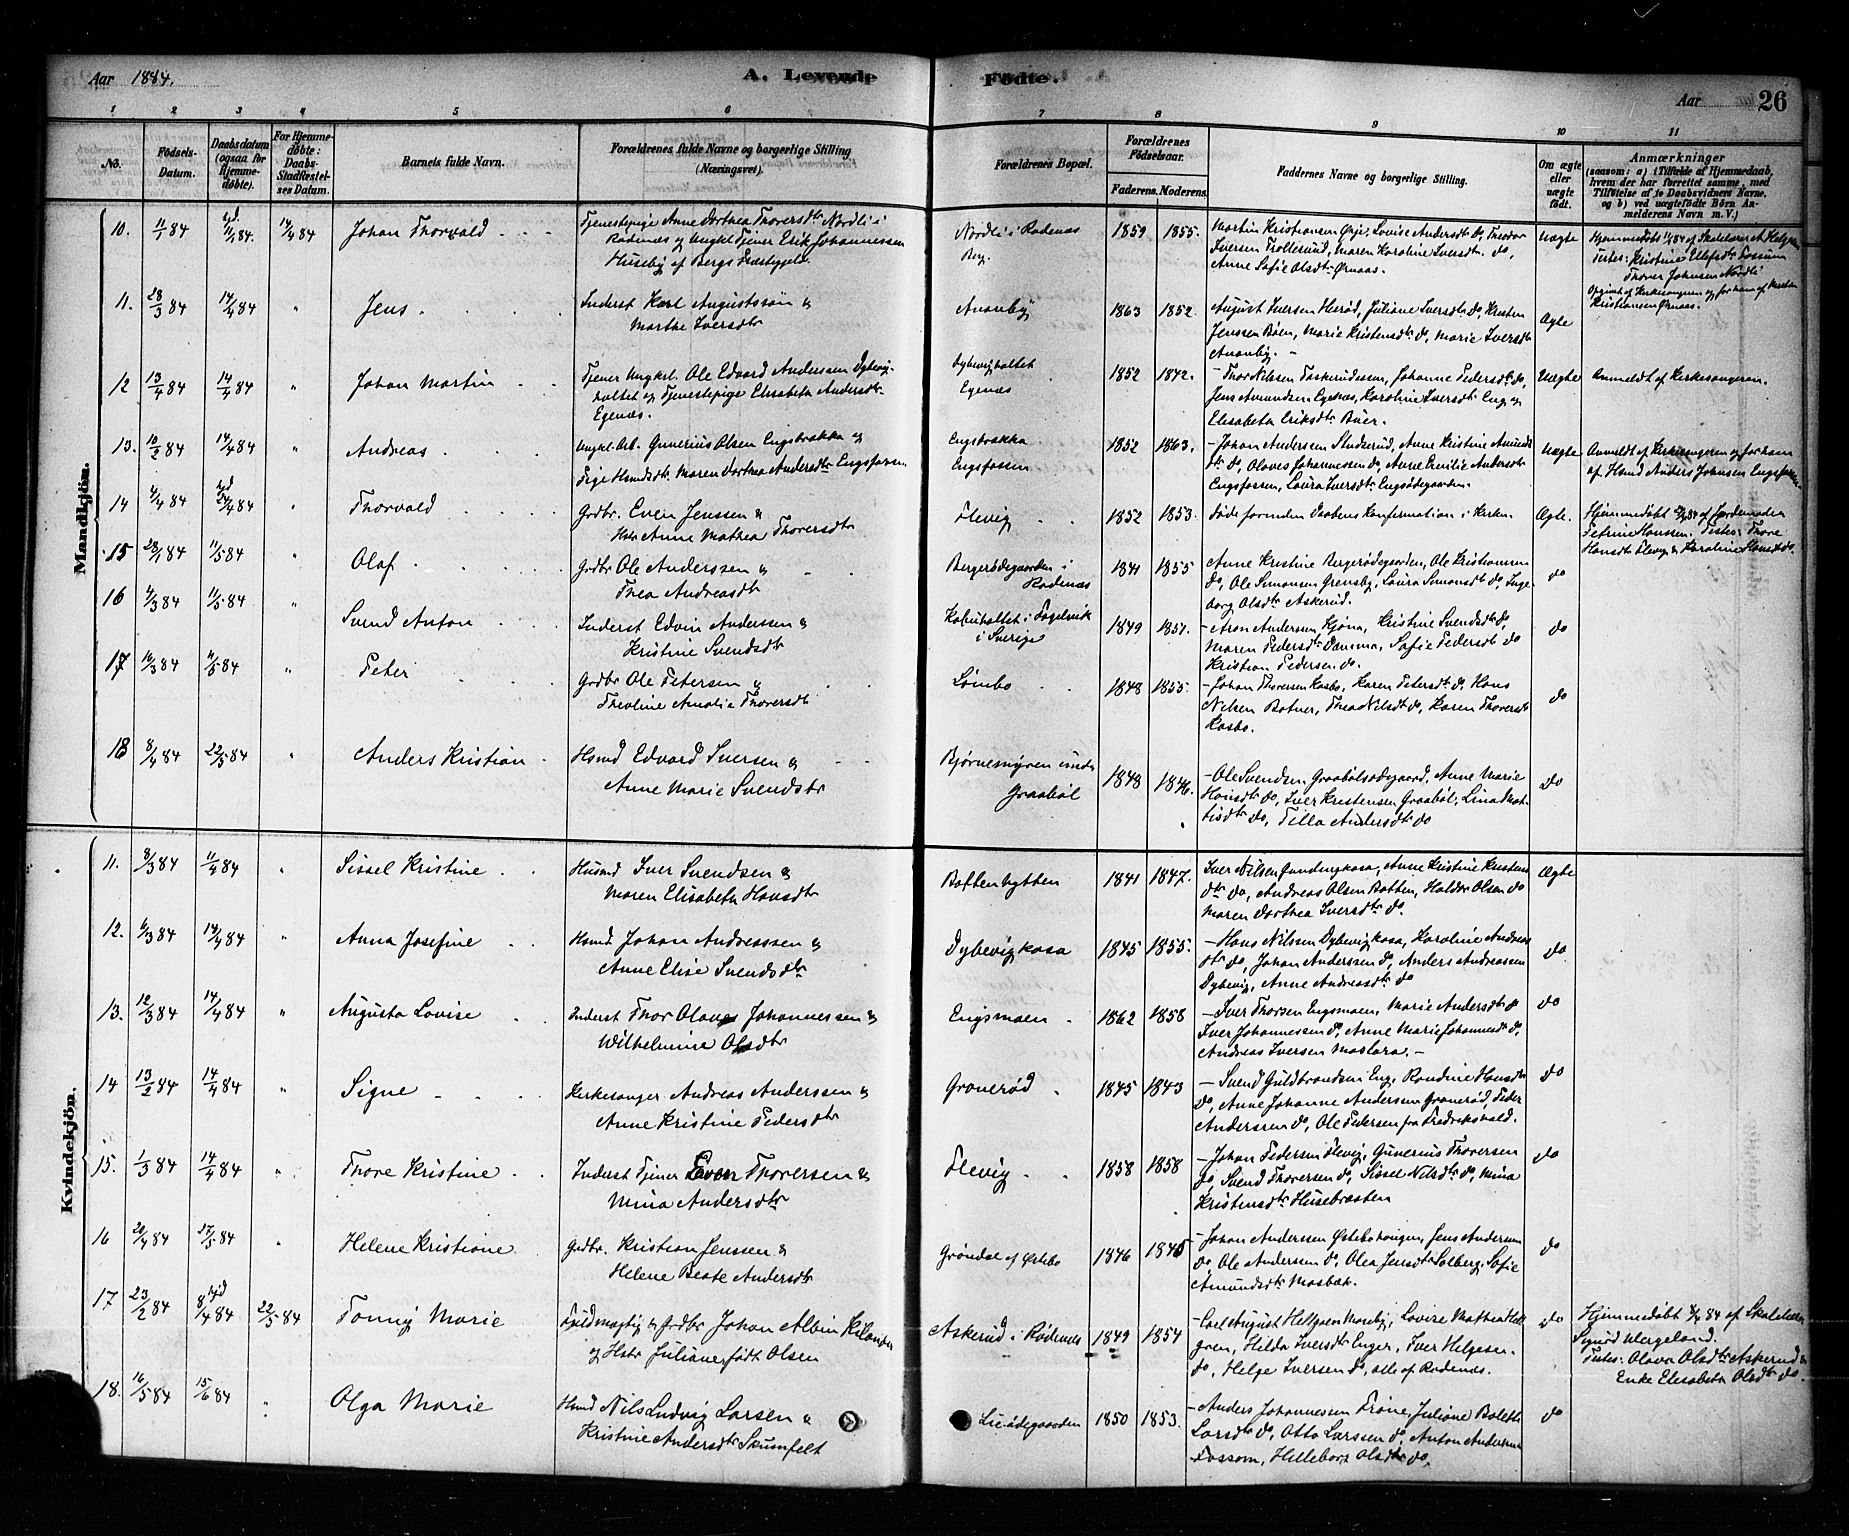 Aar 1884.
A. Levende Fødte.
Aar 26
1 2 3 4 5 6 7 8 9 10 11
No.
Fødsels-Datum.
Daabsdatum (ogsaa for Hjemme-døbte).
For Hjemme-døbte: Daabs-Stadfæstel-ses Datum.
Barnets fulde Navn.
Forældrenes fulde Navne og borgerlige Stilling (Næringsvei).
Forældrenes Bopæl.
Forældrenes Fødselsaar.
Faderens. Moderens.
Faddernes Navne og borgerlige Stilling.
Om ægte eller uægte født.
Anmærkninger
(saasom: a) i Tilfælde af Hjemmedaab, hvem der har forrettet samme, med Tilføielse af to Daabsvidners Navne, og b) ved uægtefødte Børn An-melderens Navn m. V.)
Mandkjön.
10. 11/1 84 11/1 84. 14/4 84 Johan Thorvald
Tjenestepige Anne Dorthea Thoversdtr Nordli i
Rødenæs og Ungkl Tjener Erik Johannessen
Huseby af Bergs Præstegjeld
Nordli i Rødenæs
Berg.
1859 1855.
Martin Kristiansen Ørje, Lovise Andersdtr do, Theodor
Iversen Trollerud, Maren Karoline Iversdtr do,
Anne Sofie Olsdtr Ørnaas.
Uægte
Hjemmedøbt 11/1 84 af Skolelærer A Helgesen
Testes: Kristine Ellefsdtr Fossum
Thover Johnsen Nordli
Opgivet af Kirkesangeren og for ham af Martin
Kristiansen Ørnaas.
11. 28/3 84 14/4 84 " Jens
Inderst Karl Augustssøn &
Marthe Iversdtr
Ananby
1863 1852.
August Iversen Herød, Juliane Iversdtr do, Kristen
Jenssen Böen, Marie Kristensdtr do, Marie Iversdtr
Ananby. -
Ægte
12 13/4 84 14/4 84 " Johan Martin
Tjener Ungkl. Ole Edvard Andersen Dybevig-
holtet og Tjenestepige Elisabeth Andersdtr
Egenæs.
Dybevigholtet
Egenæs
1852 1842.
- Thor Nilsen Taskerudessen, Johanne Pedersdtr do,
Jens Amundsen Egenæs, Karoline Iversdtr Eng og
Elisabeth Eriksdtr Buer.
Uægte
Anmeldt af Kirkesangeren.
13. 10/2 84 14/4 84 " Andreas
Ungkl. Arb. Gunerius Olsen Engsbrekka og
Pige Husmdtr. Maren Dorthea Andersdtr Engsfossen
Engsbrekka
Engsfossen
1852 1863.
- Johan Andersen Studserud, Anne Kristine Amunds
dtr do, Olaves Johannessen do, Anne Emilie Andersdtr
Engsfossen, Laura Iversdtr Engsødegaarden.
Uægte
Anmeldt af Kirkesangeren og for ham
af Hsmd Anders Johnsen Engsfossen.
14 4/4 84 Thorvald
Grdbr. Even Jenssen &
Hstr Anne Mathea Thoversdtr
Flevig
1852 1853.
Døde forinden Daabens Konfirmation i Kirken.
Ægte.
Hjemmedøbt 84 af Jordemoder
Petrine Hansen. Testes: Thore
Hansdtr Flevig & Karoline Hansdtr do.
15 84 11/5 84 " Olaf
Grdbr Ole Anderssen &
Thea Andreasdtr
Bergerødegaarden i
Rødenæs
1841 1855
Anne Kristine Bergerødegaarden, Ole Kristiansen
do, Ole Simonsen Grensby, Laura Simonsdtr do, Inge-
borg Olsdtr Askerud.
do
16 4/3 84 11/5 84 " Svend Anton
Inderst Edvin Anderssen &
Kristine Svendsdtr
Kolerholtet i Fogelvik
i Sverige
1849 1851.
- Aron Andersen Kjöna, Kristine Svendsdtr do,
Maren Pedersdtr Damma, Sofie Pedersdtr do
Kristian Pedersen do.
do
17 16/3 84 11/5 84 " Peter
Grdbr Ole Petersen &
Theoline Amalie Thoversdtr
Lömbo
1848 1855.
- Johan Thoversen Kasbo, Karen Petersdtr do, Hans
Nilsen Botner, Thea Nilsdtr do, Karen Thoversdtr
Kasbo.
do
18 8/4 84 22/5 84 " Anders Kristian
Hsmd Edvard Iversen &
Anne Marie Svendsdtr
Bjørnemyren under
Graaböl
1848 1846.
- Ole Svendsen, Graabölsødegaard, Anne Marie
Hansdtr do, Iver Kristensen Graaböl, Lina Mat-
tisdtr do, Tilla Andersdtr do
do
Kvindekjön.
11. 8/3 84 11/4 84 " Sissel Kristine
Husmd Iver Svendsen &
Maren Elisabeth Hansdtr
Bottenhytten
1841 1847.
Iver Nilsen Gundengkasa, Anne Kristine Kristens
dtr do, Andreas Olsen Botten, Haldor Olsen do
Maren Dorthea Iversdtr do.
Ægte
12. 6/3 84 14/4 84 " Anna Josefine
Hsmd. Johan Andreassen &
Anne Elise Svendsdtr
Dybevigkasa
1845 1855.
- Hans Nilssen Dybevigkasa, Karoline Andreas
dtr do, Johan Anderssen do, Anders Andreassen
Dybevig, Anne Andreasdtr do
do
13. 12/3 84 14/4 84 " Augusta Lovise
Inderst Thor Olaves Johannessen &
Wilhelmine Olsdtr
Engsmoen
1862 1858
- Iver Thorsen Engsmoen, Marie Andersdtr do
Iver Johannessen do, Anne Marie Johannesdtr do,
Andreas Iversen Moslara. -
do
14 13/2 84 14/4 84 " Signe
Kirkesanger Andreas Anderssen &
Anne Kristine Pedersdtr
Gronerød
1845 1843
- Svend Guldbrandsen Eng, Randine Hansdtr
do, Anne Johanne Andersen Gronerød, Peder
Anderssen do, Ole Pedersen fra Fredrikshald.
do
15. 1/3 84 14/4 84 " Thore Kristine
Inderst Tjener Even Thoversen &
Mina Andersdtr
Flevig
1858 1858
- Johan Pedersen Flevig, Gunerius Thoversen
do, Svend Thoversen do, Sissel Nilsdtr do, Mina
Kristensdtr Husebraaten
do
16 20/4 84 17/5 84 " Helene Kristiane
Grdbr. Kristian Jenssen &
Helene Beate Andersdtr
Gröndal af Østebo
1846 1845
- Johan Anderssen Østebohaugen, Jens Andersen
do, Ole Andersen do, Olea Jensdtr Solberg, Sofie
Amundsdtr Mosbæk.
do
17 23/2 84 8/4 84 22/5 84 Tonny Marie
Fuldmægtig & Grdbr Johan Albin Kilander
og Hstr Juliane født Olsen
Askerud i Rødenæs
1849 1854
- Carl August Hellgren Moreby, Lovise Mathea Hell
gren, Hilda Iversdtr Enger, Iver Helgesen
do, Helge Iversen do, alle af Rødenæs.
do
Hjemmedøbt 8/4 84 af Skolelærer
Sigurd Wergeland.
Testes: Olava Olsdtr Askerud &
Enke Elisabeth Olsdtr do.
18. 16/5 84 15/6 84 " Olga Marie
Hsmd Nils Ludvig Larsen &
Kristine Andersdtr Skumfelt
Lieödegaarden
1850 1853.
- Anders Johannessen Tröne, Juliane Bolethe
Larsdtr do, Otto Larssen do, Anton Andersen
Fossom, Helleborg Olsdtr do.
do